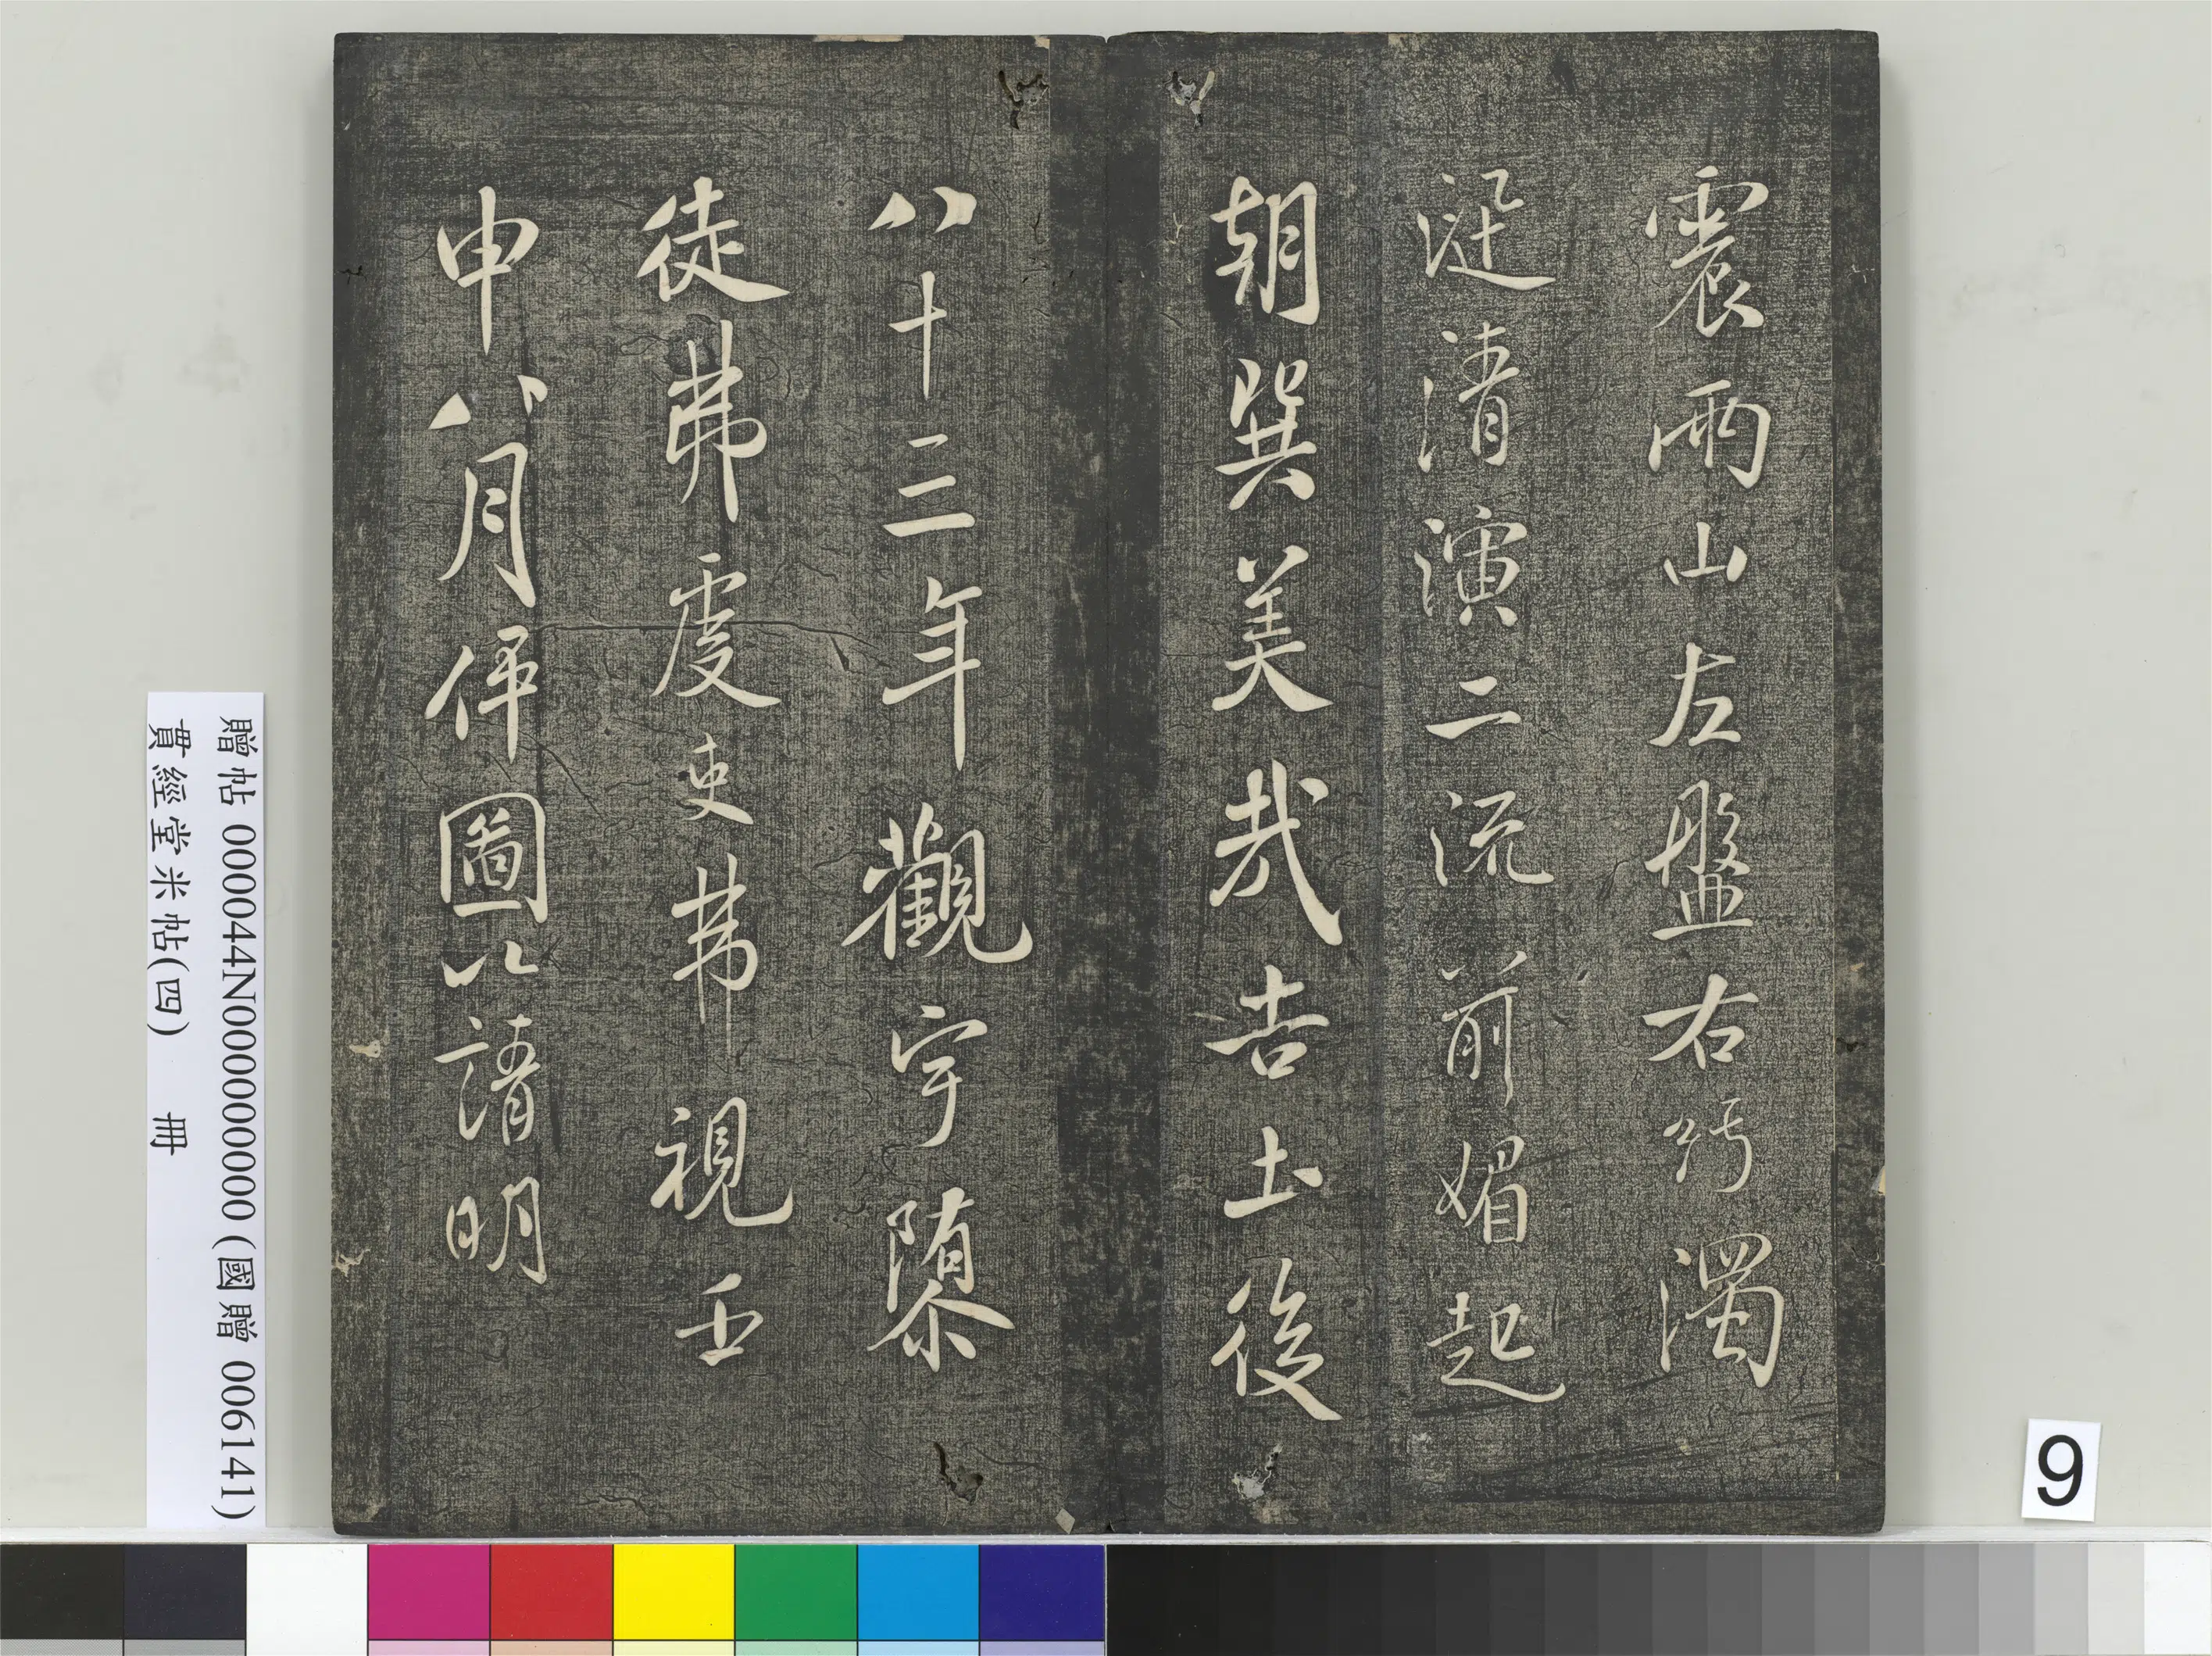 震雨山左盤右紆濁
涎清演二流前媚起
朝巽美哉吉土後
八十三年觀宇隳
徒弗虔吏弗視壬
申八月伻圖以請明
贈帖 000044N000000000 (國贈 006141)
貫經堂米帖(四) 冊
9